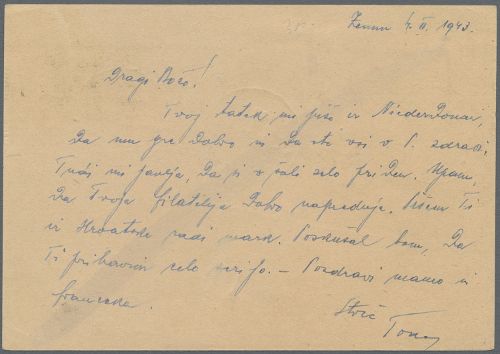 Zemun 4. II. 1943.
Dragi Božo!
Tvoj tatek mi piše iz Niederdonau,
Da mu gre Dobro in Da ste vsi v P. zdravi.
Tudi mi javlja, Da si v šoli zelo priden. Upam,
Da Tvoja filatelija Dobro napreduje. Pišem Ti
iz Hrvatske radi mark. Poskušal bom, Da
Ti pribavim celo serijo. – Pozdravi mamo in
Franceka.
Stric
Tone